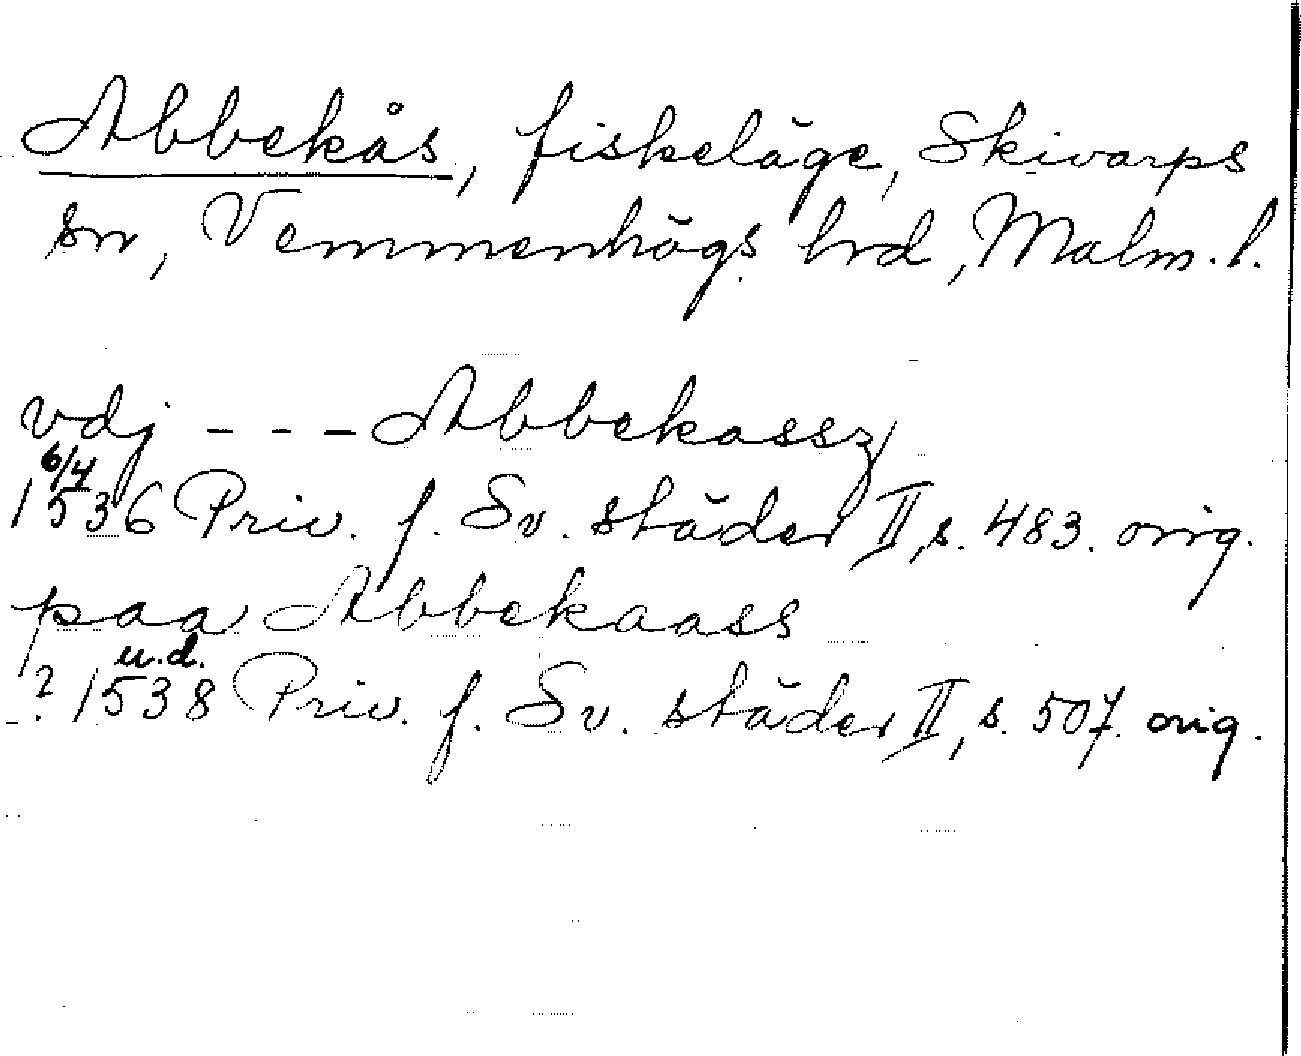 Abbekås, fiskeläge, Skivarps
sn, Vemmenhögs hrd, Malm. l.
vdj --- Abbekassz
6/4
1536 Priv. f. Sv. städer II, s. 483. orig.
paa Abbekaass
u.d.
? 1538 Priv. f. Sv. städer II, s. 507. orig.